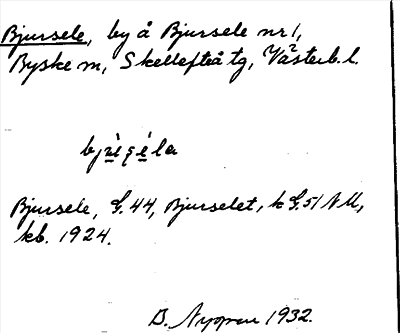 Bjursele, by å Bjursele nr 1,
Byske m, Skellefteå tg, Västerb. l.
Bjursele, G. 44, Bjurselet, k G. 51 NV,
kb. 1924.
D. 1932.